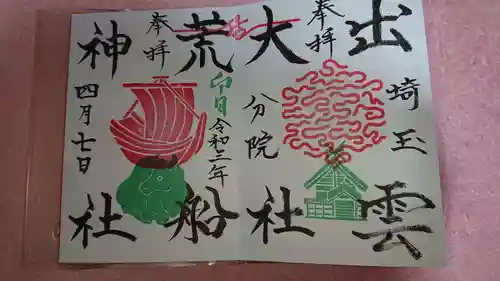 出雲
埼玉
奉拝
大社
分院
奉拝
荒船
卯日
令和三年
神社
四月七日